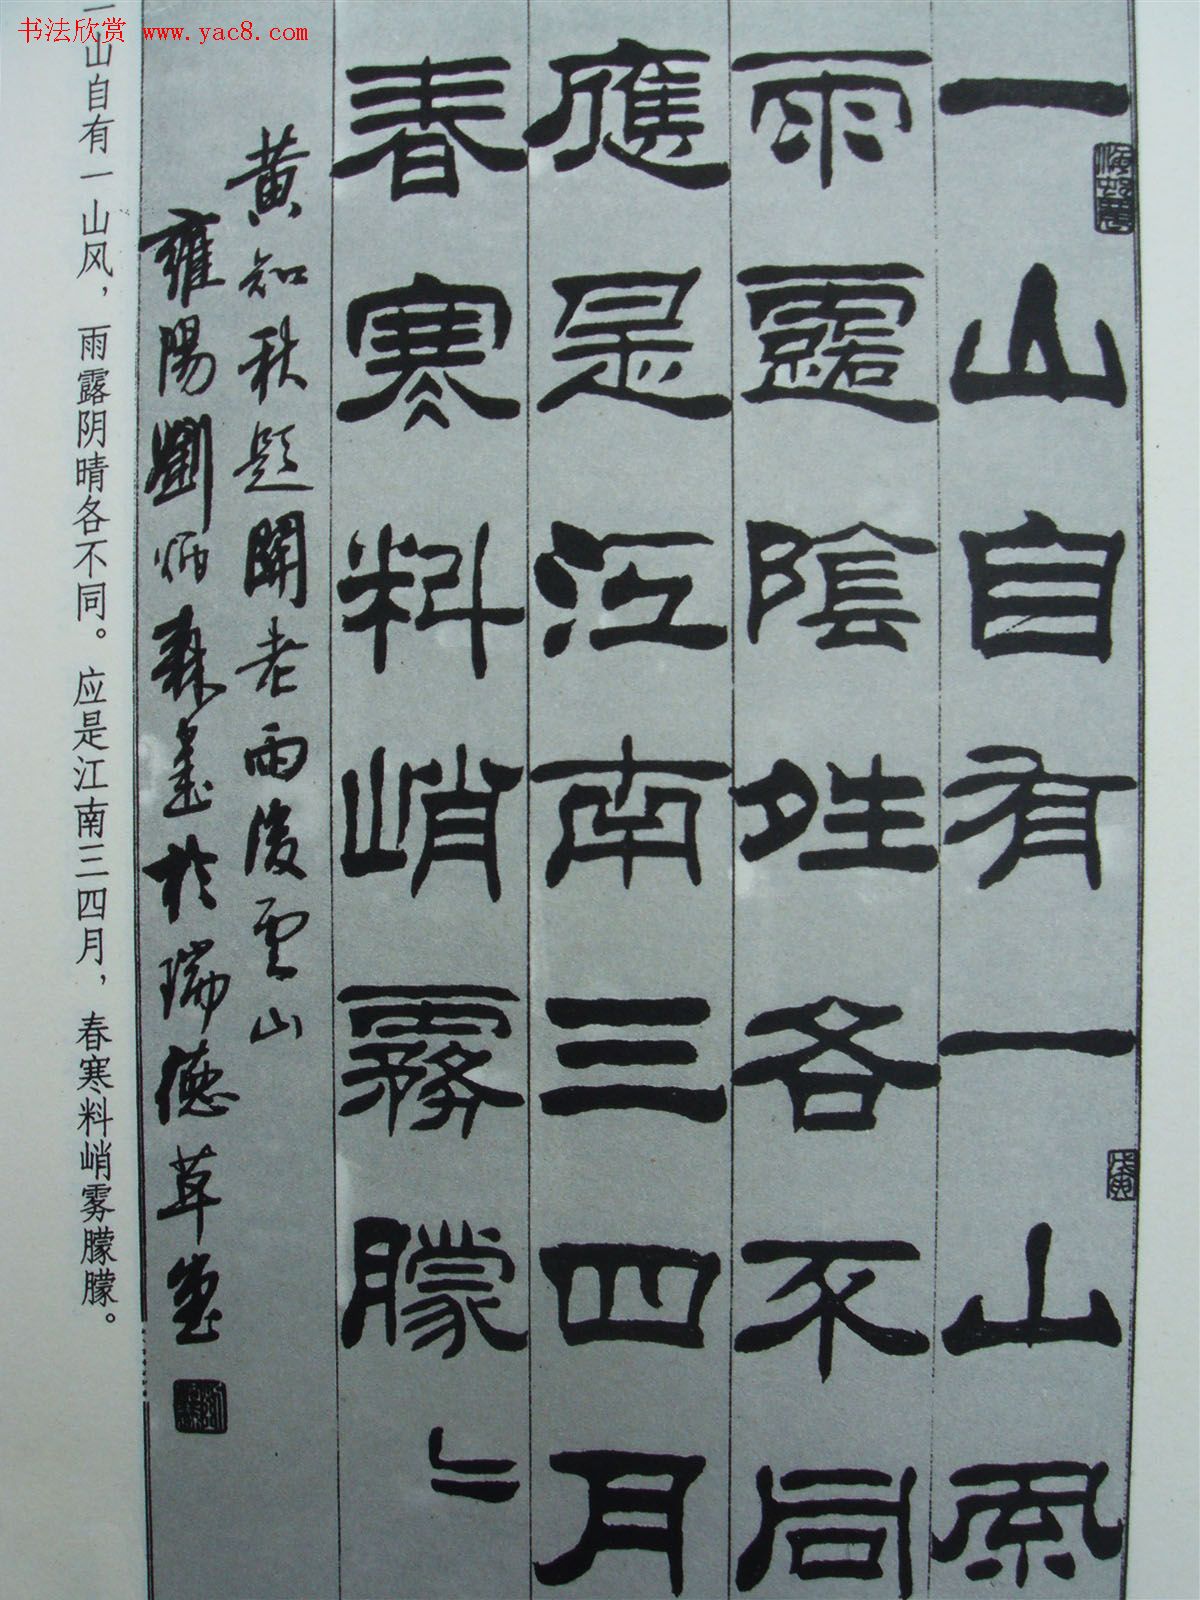 书法欣赏 www.yac8.com
一山自有一山風
雨露陰姓各不同
應是江南三四月
春寒料峭霧朦〻
黄知秋題開老雨後雲山
雍陽劉炳森書於瑞德草堂
一山自有一山风，雨露阴晴各不同。应是江南三四月，春寒料峭雾朦朦。
戊寅